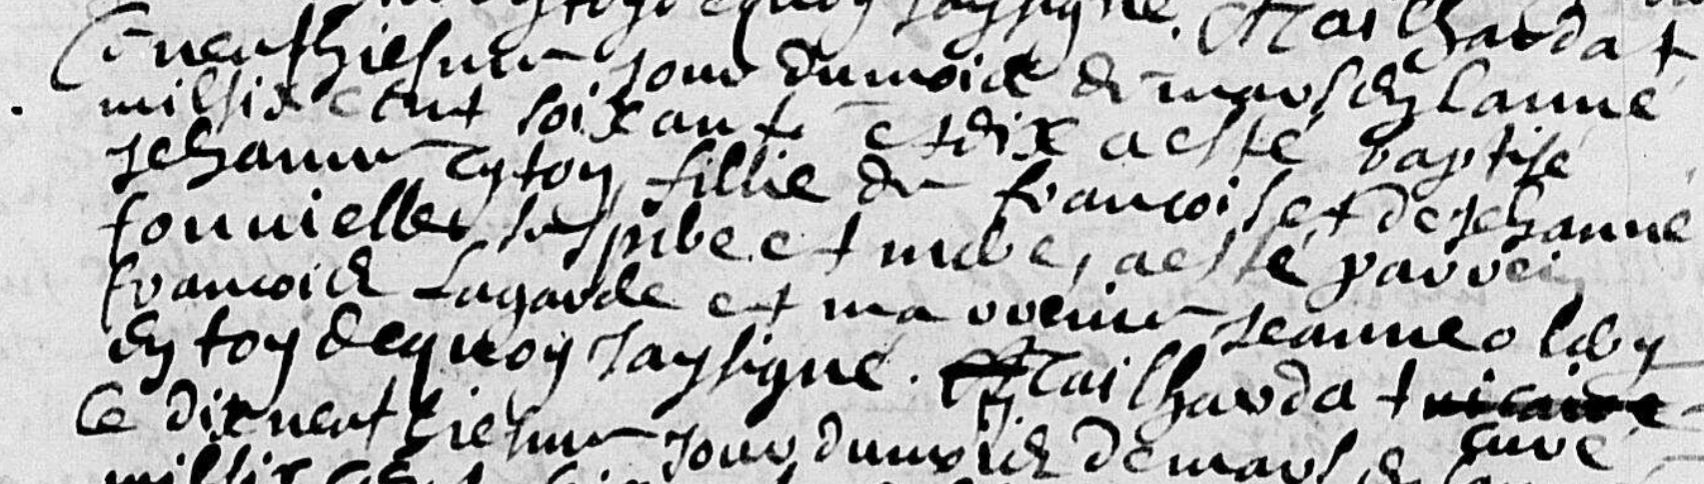 en foy dequoy jay signe. Mailhardat
Ce neufhiesme jour du mois de mars en lanne
mil six cent soixante et dix a esté baptisé
Jehanne Cytoy fillie de francois et de jehanne
fonnielle ses pere et mere, a esté parrein
francois Lagarde et marrenne jeanne
en foy dequoy jay signé. Mailhardat vicaire
curé
Ce dixneufhiesme jour du mois de mars
mil six cens